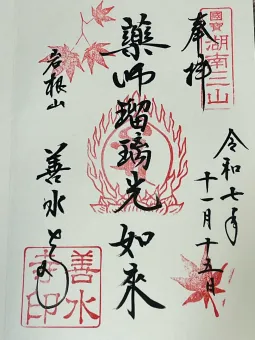 國寶
湖南三山
奉拝
令和七年
十一月十五日
薬師瑠璃光如来
岩根山
善水寺
善水寺印